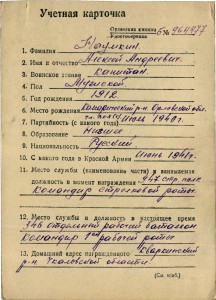 Учетная карточка
Орденская книжка № 964977
Удостоверение
1. Фамилия Наумкин
2. Имя и отчество Алексей Андреевич
3. Воинское звание капитан
4. Пол Мужской
5. Год рождения 1912
6. Место рождения р-н Орловской обл.
7. Партийность (с какого года) Июль 1940 г.
8. Образование низшее
9. Национальность Русский
10. С какого года в Красной Армии Июнь 1941 г.
11. Место службы (наименование части) и занимаемая
должность в момент награждения полк
Командир стрелковой роты
12. Место службы и должность в настоящее время
отдельный рабочий батальон
Командир рабочей роты
13. Домашний адрес награжденного Кваркинский
р-н Чкаловской области
(См. н/об.)